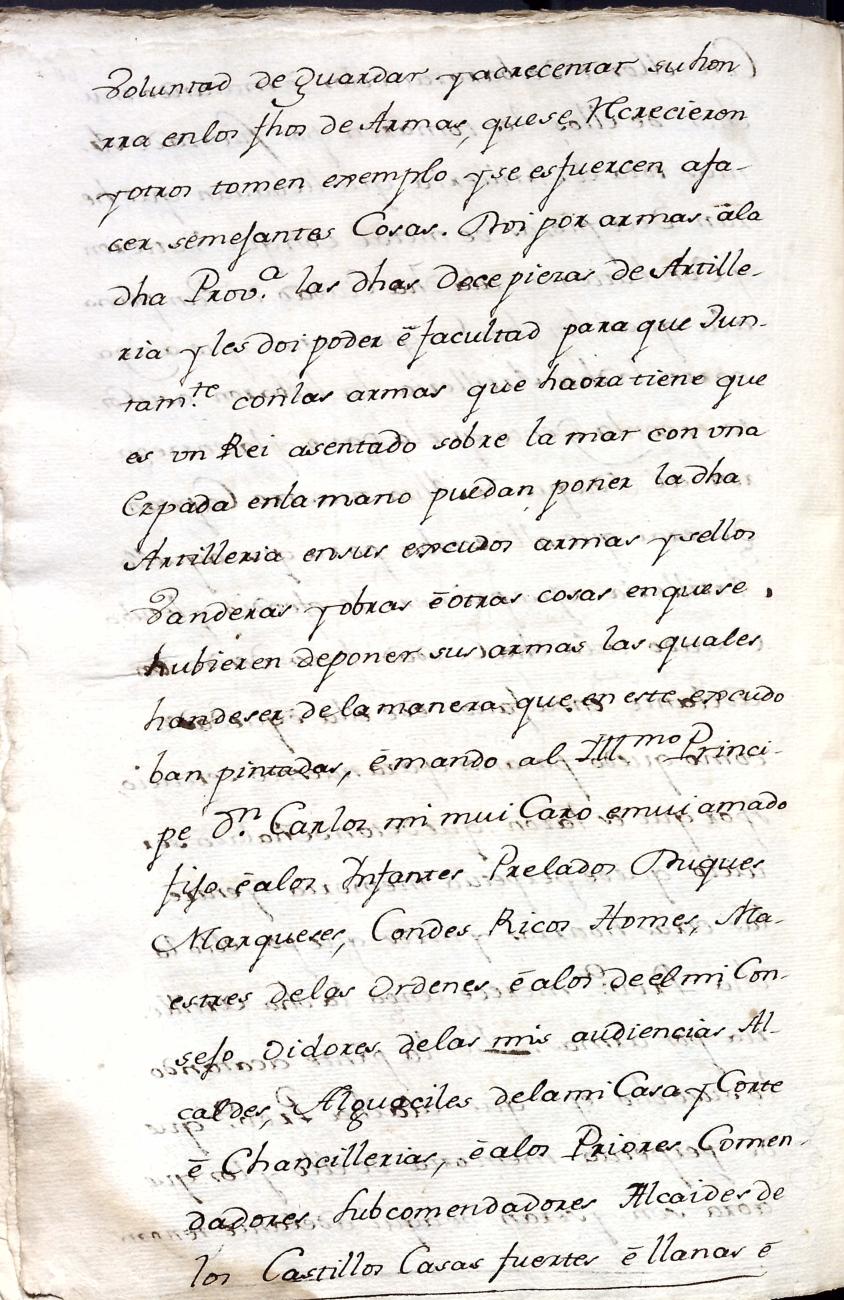 Voluntad de guardar y acrecentar su hon
rra en los fhos de Armas, que se Hcrecieron
y otros tomen exemplo y se esfuercen a fa-
cer semejantes Cosas. Doi por armas àla
dha Prov.ª las dhas doce piezas de Artille-
ria y les doi poder ē facultad para que Jun-
tam.te con las armas que haora tiene que
es vn Rei asentado sobre la mar con vna
Espada en la mano puedan poner la dha
Artilleria en sus excudos armas y sellos
Vanderas y obras ē otras cosas en que se
hubieren de poner sus armas las quales
han de ser de la manera que en este excudo
ban pintadas, ē mando al Illmo Princi-
pe D.n Carlos mi mui Caro e mui amado
fijo ē a los Infantes Prelados Duques
Marqueses, Condes Ricos Homes, Ma-
estres de las Ordenes ē a los de el mi Con-
sejo Oidores de las mis audiencias Al-
caldes, Alguaciles de la mi Casa y Corte
ē Chancillerias, ē a los Priores Comen-
dadores Subcomendadores Alcaides de
los Castillos Casas fuertes ē llanas ē